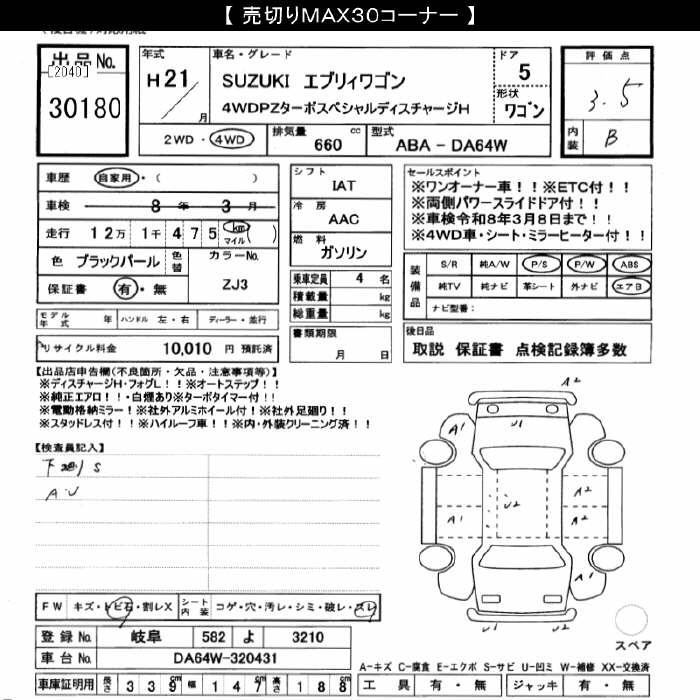 【 売切りMAX30コーナー 】
出品No.
[2040]
30180
年式
H21/
月
車名・グレード
SUZUKI エブリィワゴン
4WDPZターボスペシャルディスチャージH
ドア
5
形状
ワゴン
2WD・4WD
排気量 660 cc
型式 ABA - DA64W
評価点
3.5
内装 B
車歴 自家用・( )
車検 8年 3月
走行 12万 1千 475 km マイル( )
色 ブラックパール 色替
カラーNo.
ZJ3
保証書 有・無
シフト
IAT
冷房
AAC
燃料
ガソリン
乗車定員 4 名
積載量 kg
総重量 kg
セールスポイント
※ワンオーナー車!!※ETC付!!
※両側パワースライドドア付!!
※車検令和8年3月8日まで!!
※4WD車・シート・ミラーヒーター付!!
装備品
S/R 純A/W P/S P/W ABS
純TV 純ナビ 革シート 外ナビ エアB
ナビ型番:
モデル年式 年 ハンドル 左・右 ディーラー・並行
リサイクル料金 10,010 円 預託済
書類期限
月 日
後日品
取説 保証書 点検記録簿多数
【出品店申告欄(不良箇所・欠品・注意事項等)】
※ディスチャージH・フォグL!!※オートステップ!!
※純正エアロ!!・白煙あり※ターボタイマー付!!
※電動格納ミラー!※社外アルミホイール付!※社外足廻り!!
※スタッドレス付!!※ハイルーフ車!!※内・外装クリーニング済!!
【検査員記入】
下廻りS
A・U
A2
U1
A1
A2
A1
A2
U2
A2
U1 U2
スペア
FW キズ・トビ石・割レX シート内装 コゲ・穴・汚レ・シミ・破レ・スレ
登録No. 岐阜 582 よ 3210
車台No. DA64W-320431
車庫証明用 長さ 339cm 幅 147cm 高さ 188cm
A-キズ C-腐食 E-エクボ S-サビ U-凹ミ W-補修 XX-交換済
工具 有・無 ジャッキ 有・無